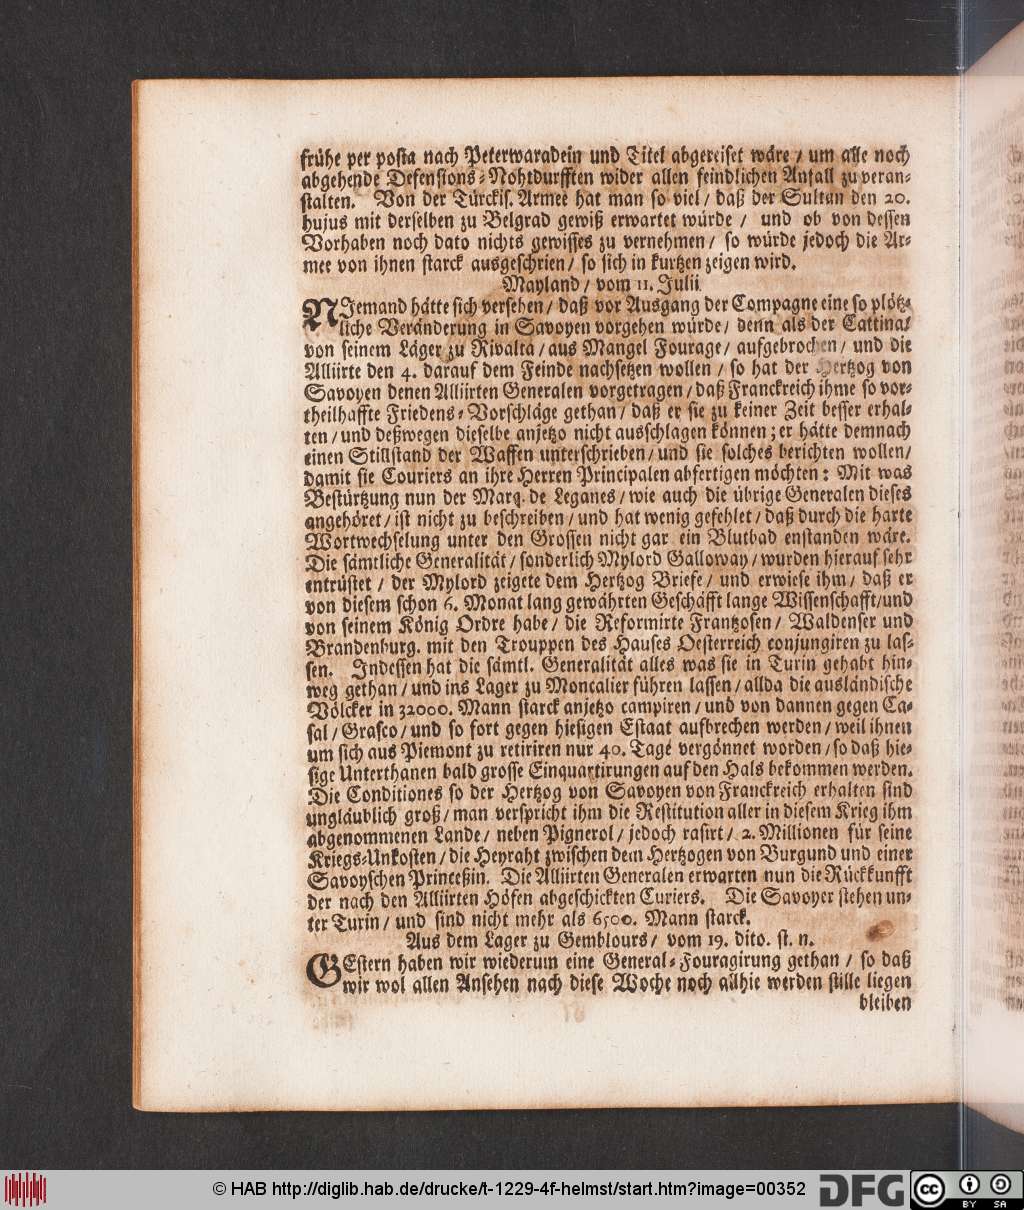 frühe per posta nach Peterwaradein und Titel abgereiset wäre / um alle noch
abgehende Defensions-Nohtdurfften wider allen feindlichen Anfall zu veran-
stalten. Von der Türckis. Armee hat man so viel / daß der Sultan den 20.
hujus mit derselben zu Belgrad gewiß erwartet würde / und ob von dessen
Vorhaben noch dato nichts gewisses zu vernehmen / so würde jedoch die Ar-
mee von ihnen starck ausgeschrien / so sich in kurtzen zeigen wird.
Mayland / vom 11. Julii
NIemand hätte sich versehen / daß vor Ausgang der Compagne eine so plötz-
liche Veränderung in Savoyen vorgehen würde / denn als der Cattinat
von seinem Läger zu Rivalta / aus Mangel Fourage / aufgebrochen / und die
Alliirte den 4. darauf dem Feinde nachsetzen wollen / so hat der Hertzog von
Savoyen denen Alliirten Generalen vorgetragen / daß Franckreich ihme so vor-
theilhaffte Friedens-Vorschläge gethan / daß er sie zu keiner Zeit besser erhal-
ten / und deßwegen dieselbe anjetzo nicht ausschlagen können; er hätte demnach
einen Stillstand der Waffen unterschrieben / und sie solches berichten wollen /
damit sie Couriers an ihre Herren Principalen abfertigen möchten: Mit was
Bestürtzung nun der Marq. de Leganes / wie auch die übrige Generalen dieses
angehöret / ist nicht zu beschreiben / und hat wenig gefehlet / daß durch die harte
Wortwechselung unter den Grossen nicht gar ein Blutbad enstanden wäre.
Die sämtliche Generalität / sonderlich Mylord Galloway / wurden hierauf sehr
entrüstet / der Mylord zeigete dem Hertzog Briefe / und erwiese ihm / daß er
von diesem schon 6. Monat lang gewährten Geschäfft lange Wissenschafft / und
von seinem König Ordre habe / die Reformirte Frantzosen / Waldenser und
Brandenburg. mit den Trouppen des Hauses Oesterreich conjungiren zu las-
sen. Indessen hat die sämtl. Generalität alles was sie in Turin gehabt hin-
weg gethan / und ins Lager zu Moncalier führen lassen / allda die ausländische
Völcker in 32000. Mann starck anjetzo campiren / und von dannen gegen Ca-
sal / Grasco / und so fort gegen hiesigen Estaat aufbrechen werden / weil ihnen
um sich aus Piemont zu retiriren nur 40. Tage vergönnet worden / so daß hie-
sige Unterthanen bald grosse Einquartirungen auf den Hals bekommen werden.
Die Conditiones so der Hertzog von Savoyen von Franckreich erhalten sind
ungläublich groß / man verspricht ihm die Restitution aller in diesem Krieg ihm
abgenommenen Lande / neben Pignerol / jedoch rasirt / 2. Millionen für seine
Kriegs-Unkosten / die Heyraht zwischen dem Hertzogen von Burgund und einer
Savoyschen Princeßin. Die Alliirten Generalen erwarten nun die Rückkunfft
der nach den Alliirten Höfen abgeschickten Curiers. Die Savoyer stehen un-
ter Turin / und sind nicht mehr als 6500. Mann starck.
Aus dem Lager zu Gemblours / vom 19. dito. st. n.
GEstern haben wir wiederum eine General-Fouragirung gethan / so daß
wir wol allen Ansehen nach diese Woche noch allhie werden stille liegen
bleiben
© HAB http://diglib.hab.de/drucke/t-1229-4f-helmst/start.htm?image=00352
DFG
cc BY SA